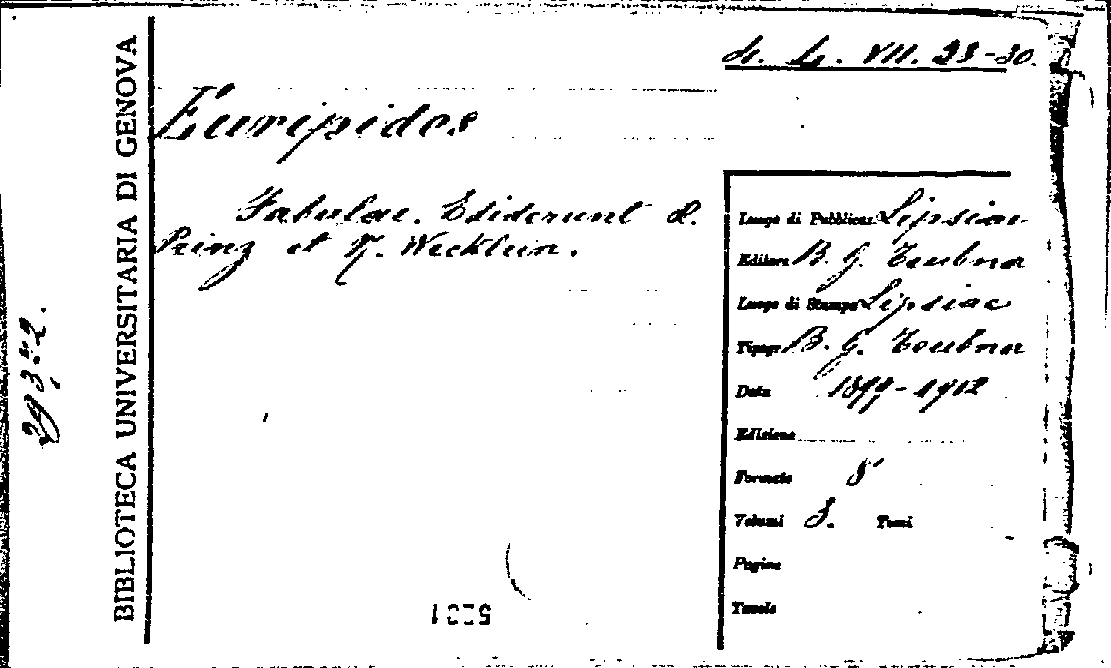 BIBLIOTECA UNIVERSITARIA DI GENOVA
VII. 23-30.
Euripides
Fabulae. Ediderunt R.
Prinz et N. Wecklein.
Luogo di Pubblicaz. Lipsiae
Editore B. G. Teubner
Luogo di Stampa Lipsiae
Tipogr. B. G. Teubner
Data 1899-1912
Edizione
Formato 8°
Volumi 3. Tomi
Pagine
Tavole